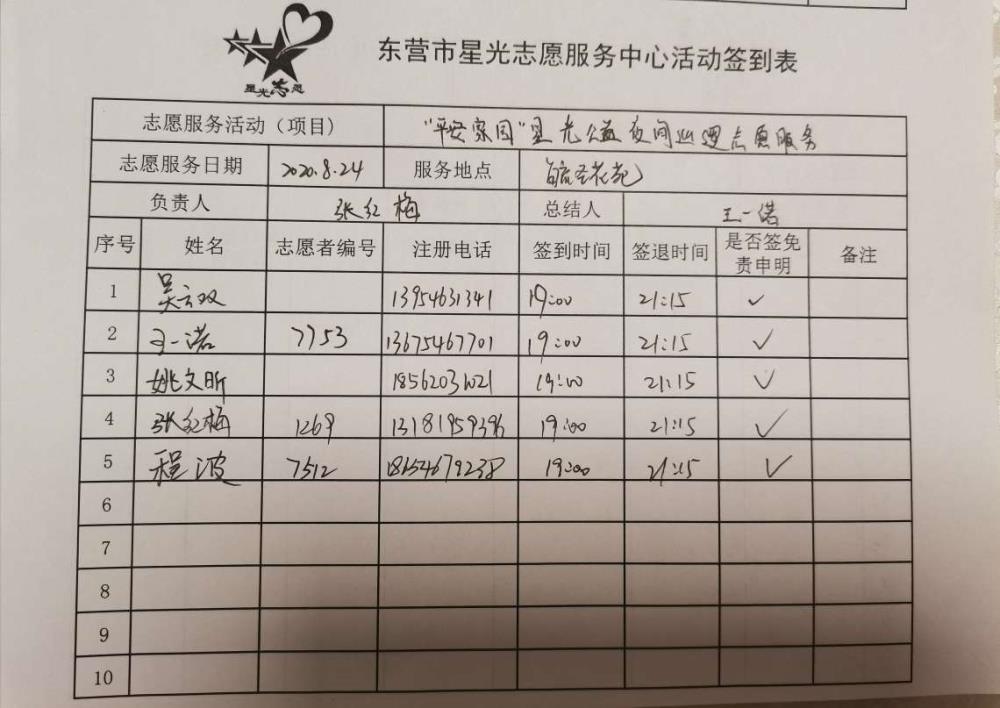 星光志愿
东营市星光志愿服务中心活动签到表
志愿服务活动（项目） “平安家园”星光公益夜间巡逻志愿服务
志愿服务日期 2020.8.24 服务地点 花苑
负责人 张红梅 总结人 王一诺
序号 姓名 志愿者编号 注册电话 签到时间 签退时间 是否签免责申明 备注
1 吴云双 13954631341 19:00 21:15 ✓
2 王一诺 7753 13675467701 19:00 21:15 ✓
3 姚文昕 19:00 21:15 ✓
4 张红梅 1269 13181959396 19:00 21:15 ✓
5 程波 7512 18654679238 19:00 21:15 ✓
6
7
8
9
10